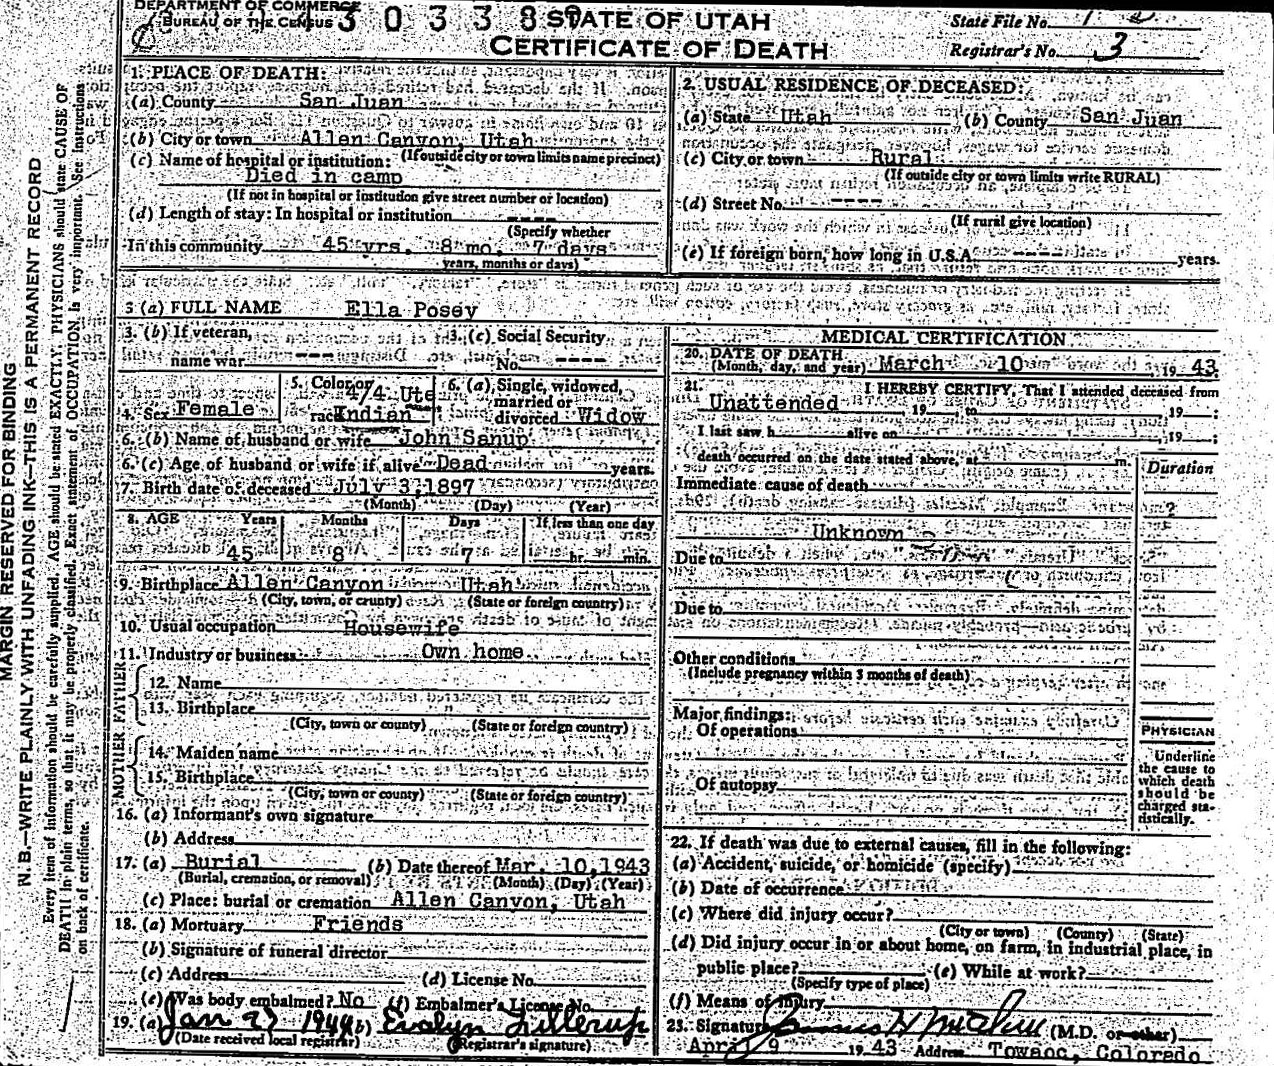 DEPARTMENT OF COMMERCE
BUREAU OF THE CENSUS
STATE OF UTAH
CERTIFICATE OF DEATH
State File No.
Registrar's No. 3
MARGIN RESERVED FOR BINDING
N. B.—WRITE PLAINLY WITH UNFADING INK—THIS IS A PERMANENT RECORD
Every item of information should be carefully supplied. AGE should be stated EXACTLY. PHYSICIANS should state CAUSE OF
DEATH in plain terms, so that it may be properly classified. Exact statement of OCCUPATION is very important. See instructions
on back of certificate.
1. PLACE OF DEATH:
(a) County San Juan
(b) City or town Allen Canyon, Utah
(If outside city or town limits name precinct)
(c) Name of hospital or institution:
Died in camp
(If not in hospital or institution give street number or location)
(d) Length of stay: In hospital or institution ----
(Specify whether
In this community 45 yrs. 8 mo. 7 days
years, months or days)
2. USUAL RESIDENCE OF DECEASED:
(a) State Utah (b) County San Juan
(c) City or town Rural
(If outside city or town limits write RURAL)
(d) Street No. ----
(If rural give location)
(e) If foreign born, how long in U.S.A. ---- years.
3 (a) FULL NAME Ella Posey
3. (b) If veteran, name war ---
3. (c) Social Security No. ----
4. Sex Female
5. Color or race 4/4 Ute Indian
6. (a) Single, widowed, married or divorced Widow
6. (b) Name of husband or wife John Sanup
6. (c) Age of husband or wife if alive Dead years.
7. Birth date of deceased July 3, 1897
(Month) (Day) (Year)
8. AGE Years Months Days If less than one day
45 8 7 hr. min.
9. Birthplace Allen Canyon Utah
(City, town, or county) (State or foreign country)
10. Usual occupation Housewife
11. Industry or business Own home
FATHER
12. Name
13. Birthplace
(City, town or county) (State or foreign country)
MOTHER
14. Maiden name
15. Birthplace
(City, town or county) (State or foreign country)
16. (a) Informant's own signature
(b) Address
17. (a) Burial (b) Date thereof Mar. 10, 1943
(Burial, cremation, or removal) (Month) (Day) (Year)
(c) Place: burial or cremation Allen Canyon, Utah
18. (a) Mortuary Friends
(b) Signature of funeral director
(c) Address (d) License No.
(e) Was body embalmed? No (f) Embalmer's License No.
19. (a) Jan 27 1944 (b) Evalyn Fillerup
(Date received local registrar) (Registrar's signature)
MEDICAL CERTIFICATION
20. DATE OF DEATH
(Month, day, and year) March 10 19 43
21. I HEREBY CERTIFY, That I attended deceased from
Unattended , 19 , to , 19 ;
I last saw h alive on , 19 ;
death occurred on the date stated above, at m.
Duration
Immediate cause of death
?
Unknown
Due to
Due to
Other conditions
(Include pregnancy within 3 months of death)
Major findings:
Of operations
Of autopsy
PHYSICIAN
Underline
the cause to
which death
should be
charged sta-
tistically.
22. If death was due to external causes, fill in the following:
(a) Accident, suicide, or homicide (specify)
(b) Date of occurrence
(c) Where did injury occur?
(City or town) (County) (State)
(d) Did injury occur in or about home, on farm, in industrial place, in
public place? (e) While at work?
(Specify type of place)
(f) Means of injury
23. Signature (M.D. or other)
April 9 19 43 Address Towaoc, Colorado